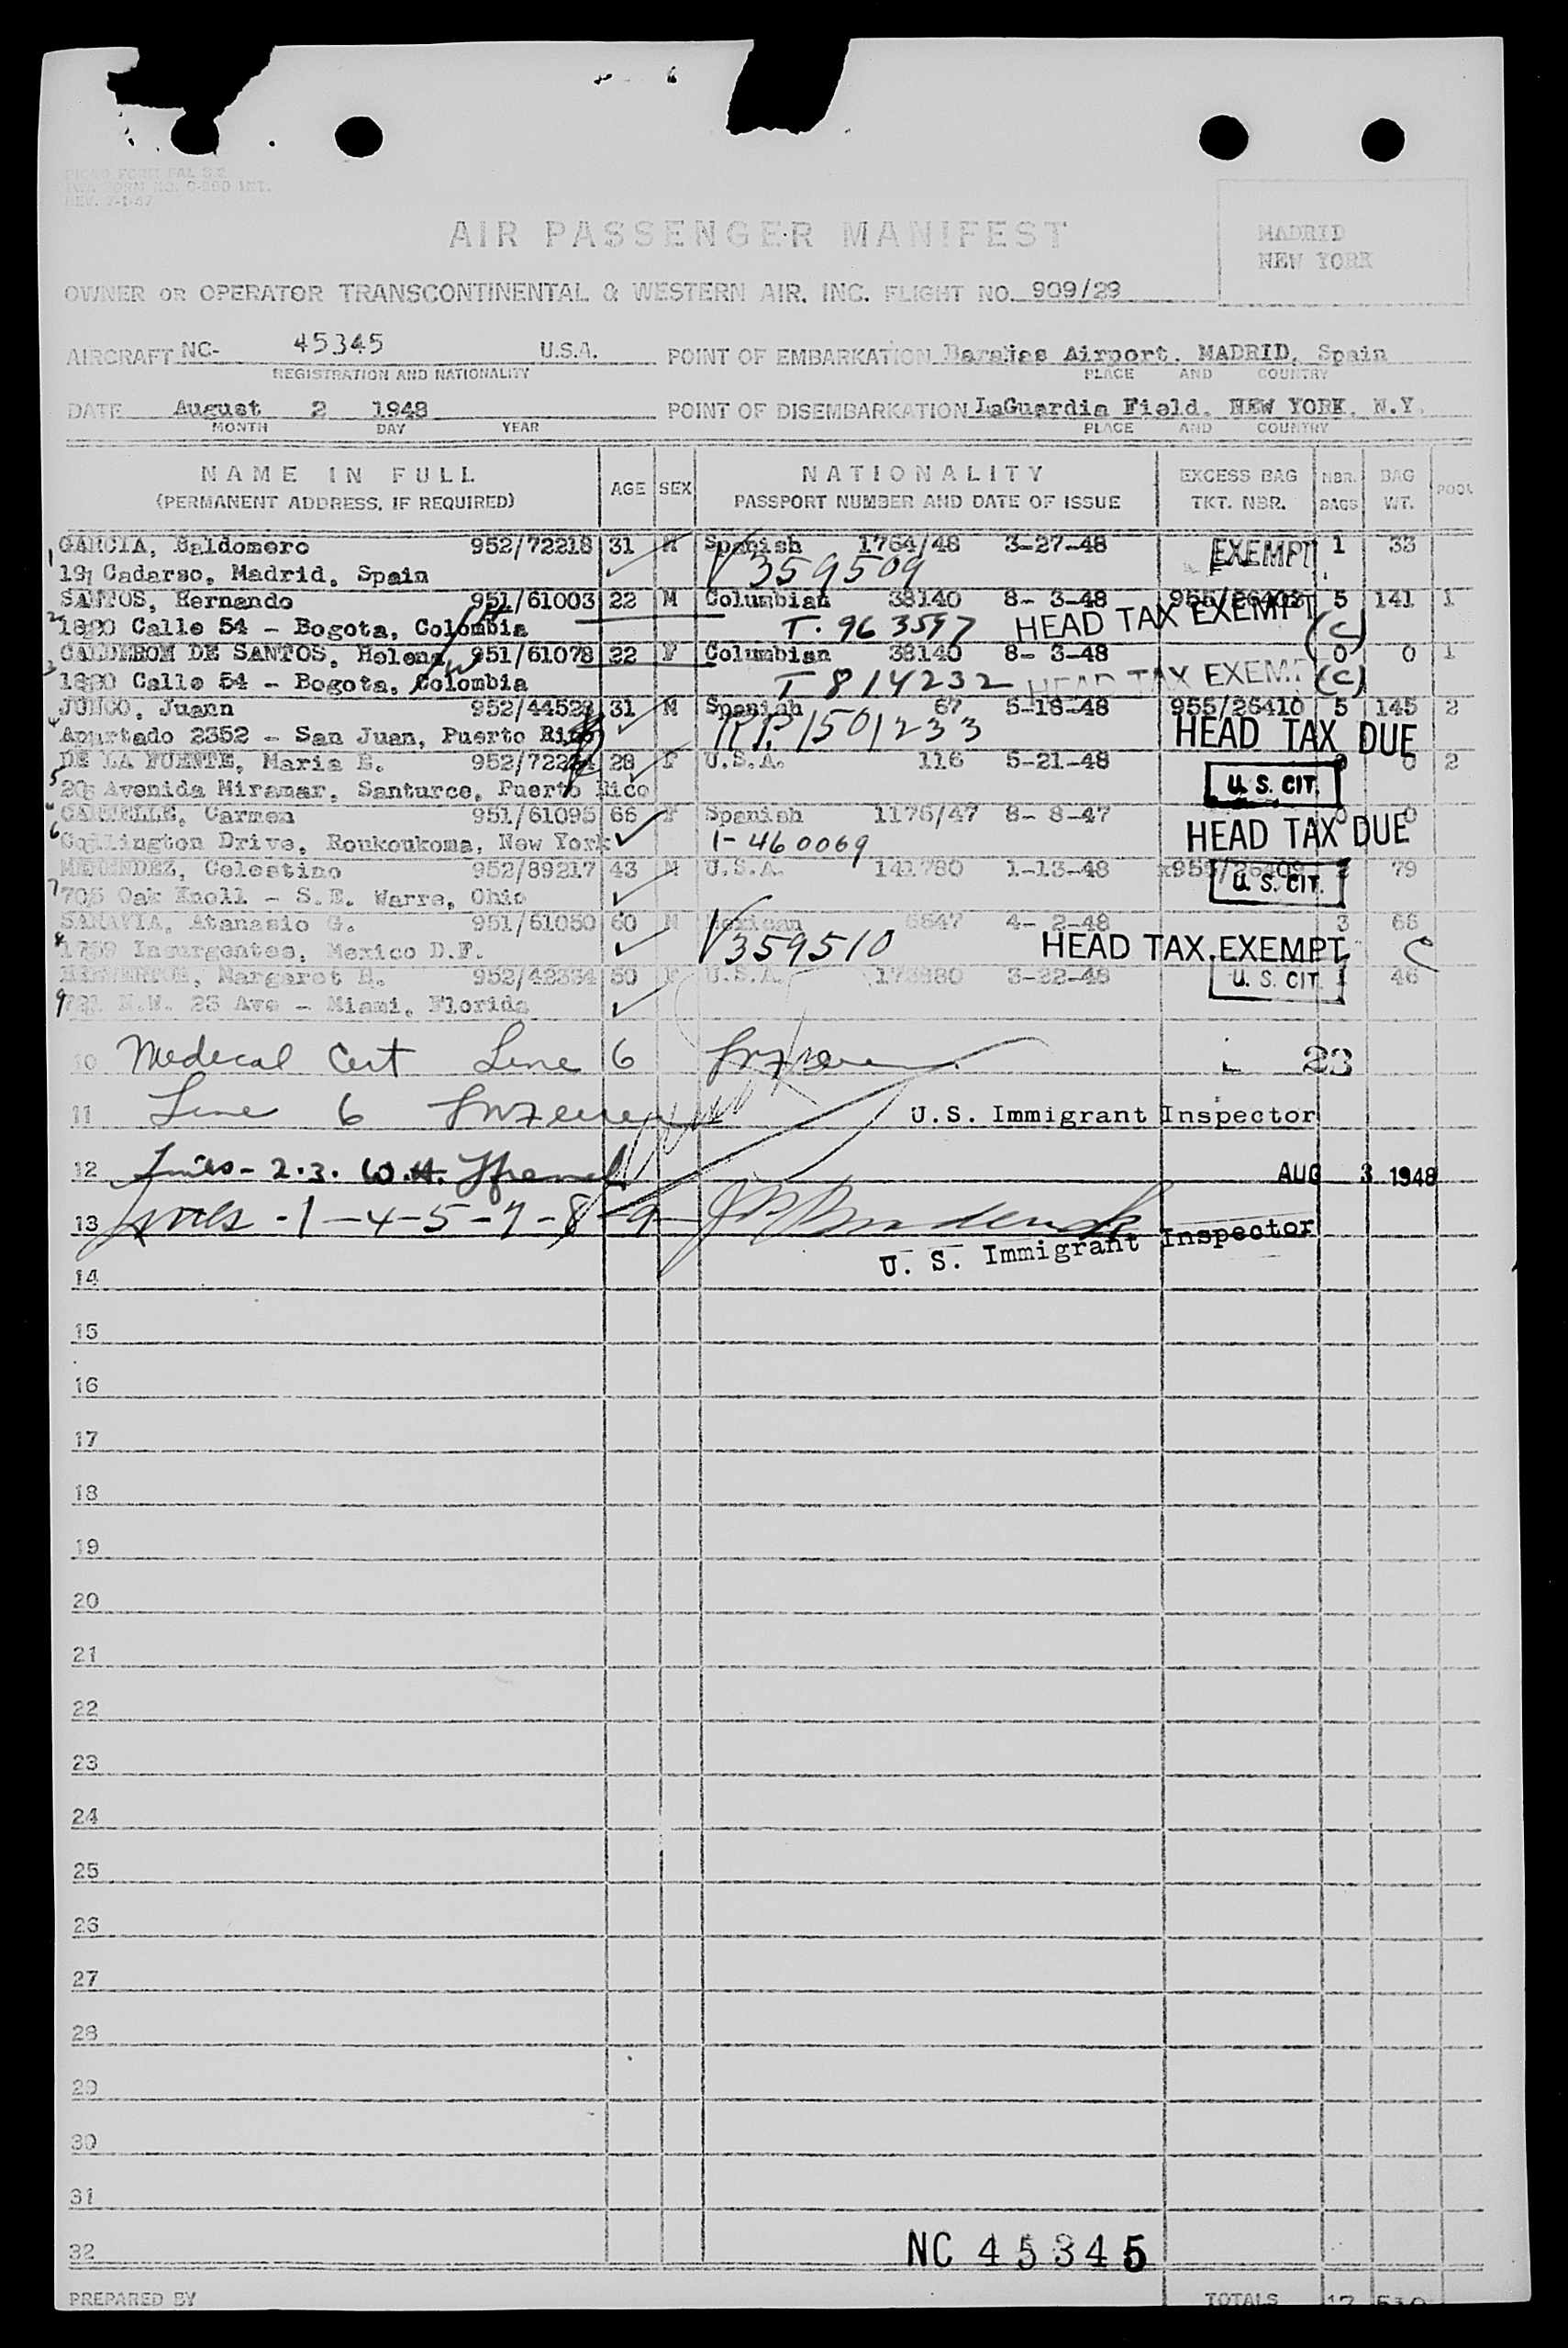 REV. 7-1-47
AIR PASSENGER MANIFEST
MADRID
NEW YORK
OWNER OR OPERATOR TRANSCONTINENTAL & WESTERN AIR, INC. FLIGHT NO. 909/29
AIRCRAFT NC- 45345 U.S.A. POINT OF EMBARKATION Barajas Airport, MADRID, Spain
REGISTRATION AND NATIONALITY PLACE AND COUNTRY
DATE August 2 1948 POINT OF DISEMBARKATION LaGuardia Field, NEW YORK, N.Y.
MONTH DAY YEAR PLACE AND COUNTRY
NAME IN FULL AGE SEX NATIONALITY EXCESS BAG NBR. BAG POOL
(PERMANENT ADDRESS, IF REQUIRED) PASSPORT NUMBER AND DATE OF ISSUE TKT. NBR. BAGS WT.
1 GARCIA, Baldomero 952/72218 31 M Spanish 1764/48 3-27-48 EXEMPT 1 33
19, Cadarso, Madrid, Spain V359509
2 SANTOS, Hernando 951/61003 22 M Columbian 38140 8- 3-48 5 141 1
Calle 54 - Bogota, Colombia T. 963597 HEAD TAX EXEMPT (C)
3 CALDERON DE SANTOS, Helena 951/61078 22 F Columbian 38140 8- 3-48 0 0 1
Calle 54 - Bogota, Colombia T 814232 HEAD TAX EXEMPT (C)
4 JUNCO, Juann 31 M Spanish 67 5-18-48 955/26410 5 145 2
Apartado 2352 - San Juan, Puerto Rico R.P. 1501233 HEAD TAX DUE
5 DE LA FUENTE, Maria E. 28 F U.S.A. 116 5-21-48 0 2
Avenida Miramar, Santurce, Puerto Rico U.S. CIT.
6 Carmen 951/61095 66 F Spanish 1176/47 8- 8-47 0 0
Drive, Roukoukoma, New York 1-460069 HEAD TAX DUE
7 MENENDEZ, Celestino 952/89217 43 M U.S.A. 141780 1-13-48 2 79
705 Oak Knoll - S.E. Warre, Ohio U.S. CIT.
8 SARAVIA, Atanasio G. 951/61050 60 M Mexican 4- 2-48 3 66
Insurgentes, Mexico D.F. V359510 HEAD TAX EXEMPT C
9 Margaret 952/42334 50 F U.S.A. 3-22-48 1 46
N.W. 25 Ave - Miami, Florida U.S. CIT.
10 Medecal Cert Line 6 23
11 Line 6 U.S. Immigrant Inspector
12 Lines - 2.3. W.H. AUG 3 1948
13 Lines - 1-4-5-7-8-9
U. S. Immigrant Inspector
14
15
16
17
18
19
20
21
22
23
24
25
26
27
28
29
30
31
32 NC 45345
PREPARED BY TOTALS 17